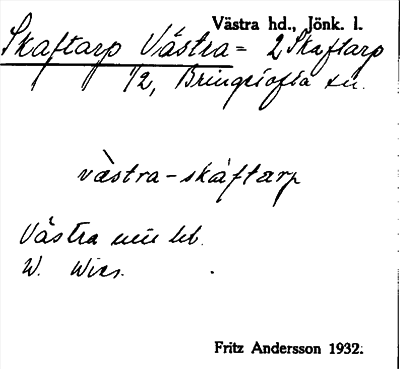 Västra hd., Jönk. l.
Skaftarp Västra = 2 Skaftarp
1/2, Bringetofta sn.
västra-skáftarp
Västra
W.
Fritz Andersson 1932.